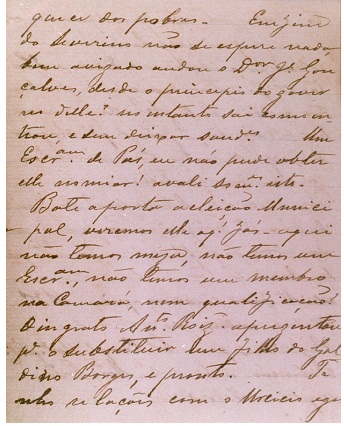 quece dos pobres. Emfim
do Severino não se espere nada
bem avizado andou o Dor. Je. Gon
çalves, desde o principio do gover
no delle? no entanto sai como en
trou, e sem deixar saudes. Um
Escram. de Paz, eu não pude obter
elle nomiar! avali so
Bate aporta a eleição Munici
pal, viremos elle aqi.
não temos meza, não temos um
Escram., não temos um membro
na Camara, nem qualificação!
O ingrato Anto. Roiz. aprezentou
pa. o substituir um filho do Gal
dino Borges, e prompto. Te
nho relações com o